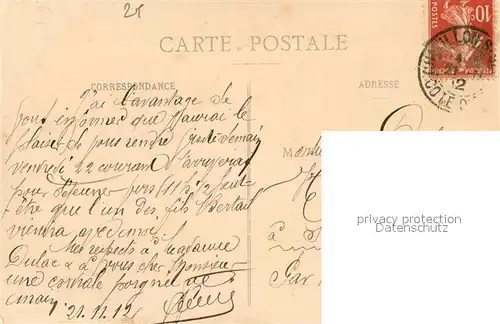 25
10
POSTES
CARTE POSTALE
CORRESPONDANCE
ADRESSE
J'ai l'avantage de
vous informer que j'aurai le
plaisir de vous rendre visite demain
vendredi 22 courant. J'arriverai
pour déjeuner vers 11 h 1/2 peut-
être que l'un des fils Bertail
viendra avec moi.
Mes respects à Madame
Dulac & à vous cher Monsieur
une cordiale poignée de
main
21.11.12
privacy protection
Datenschutz
à
Par